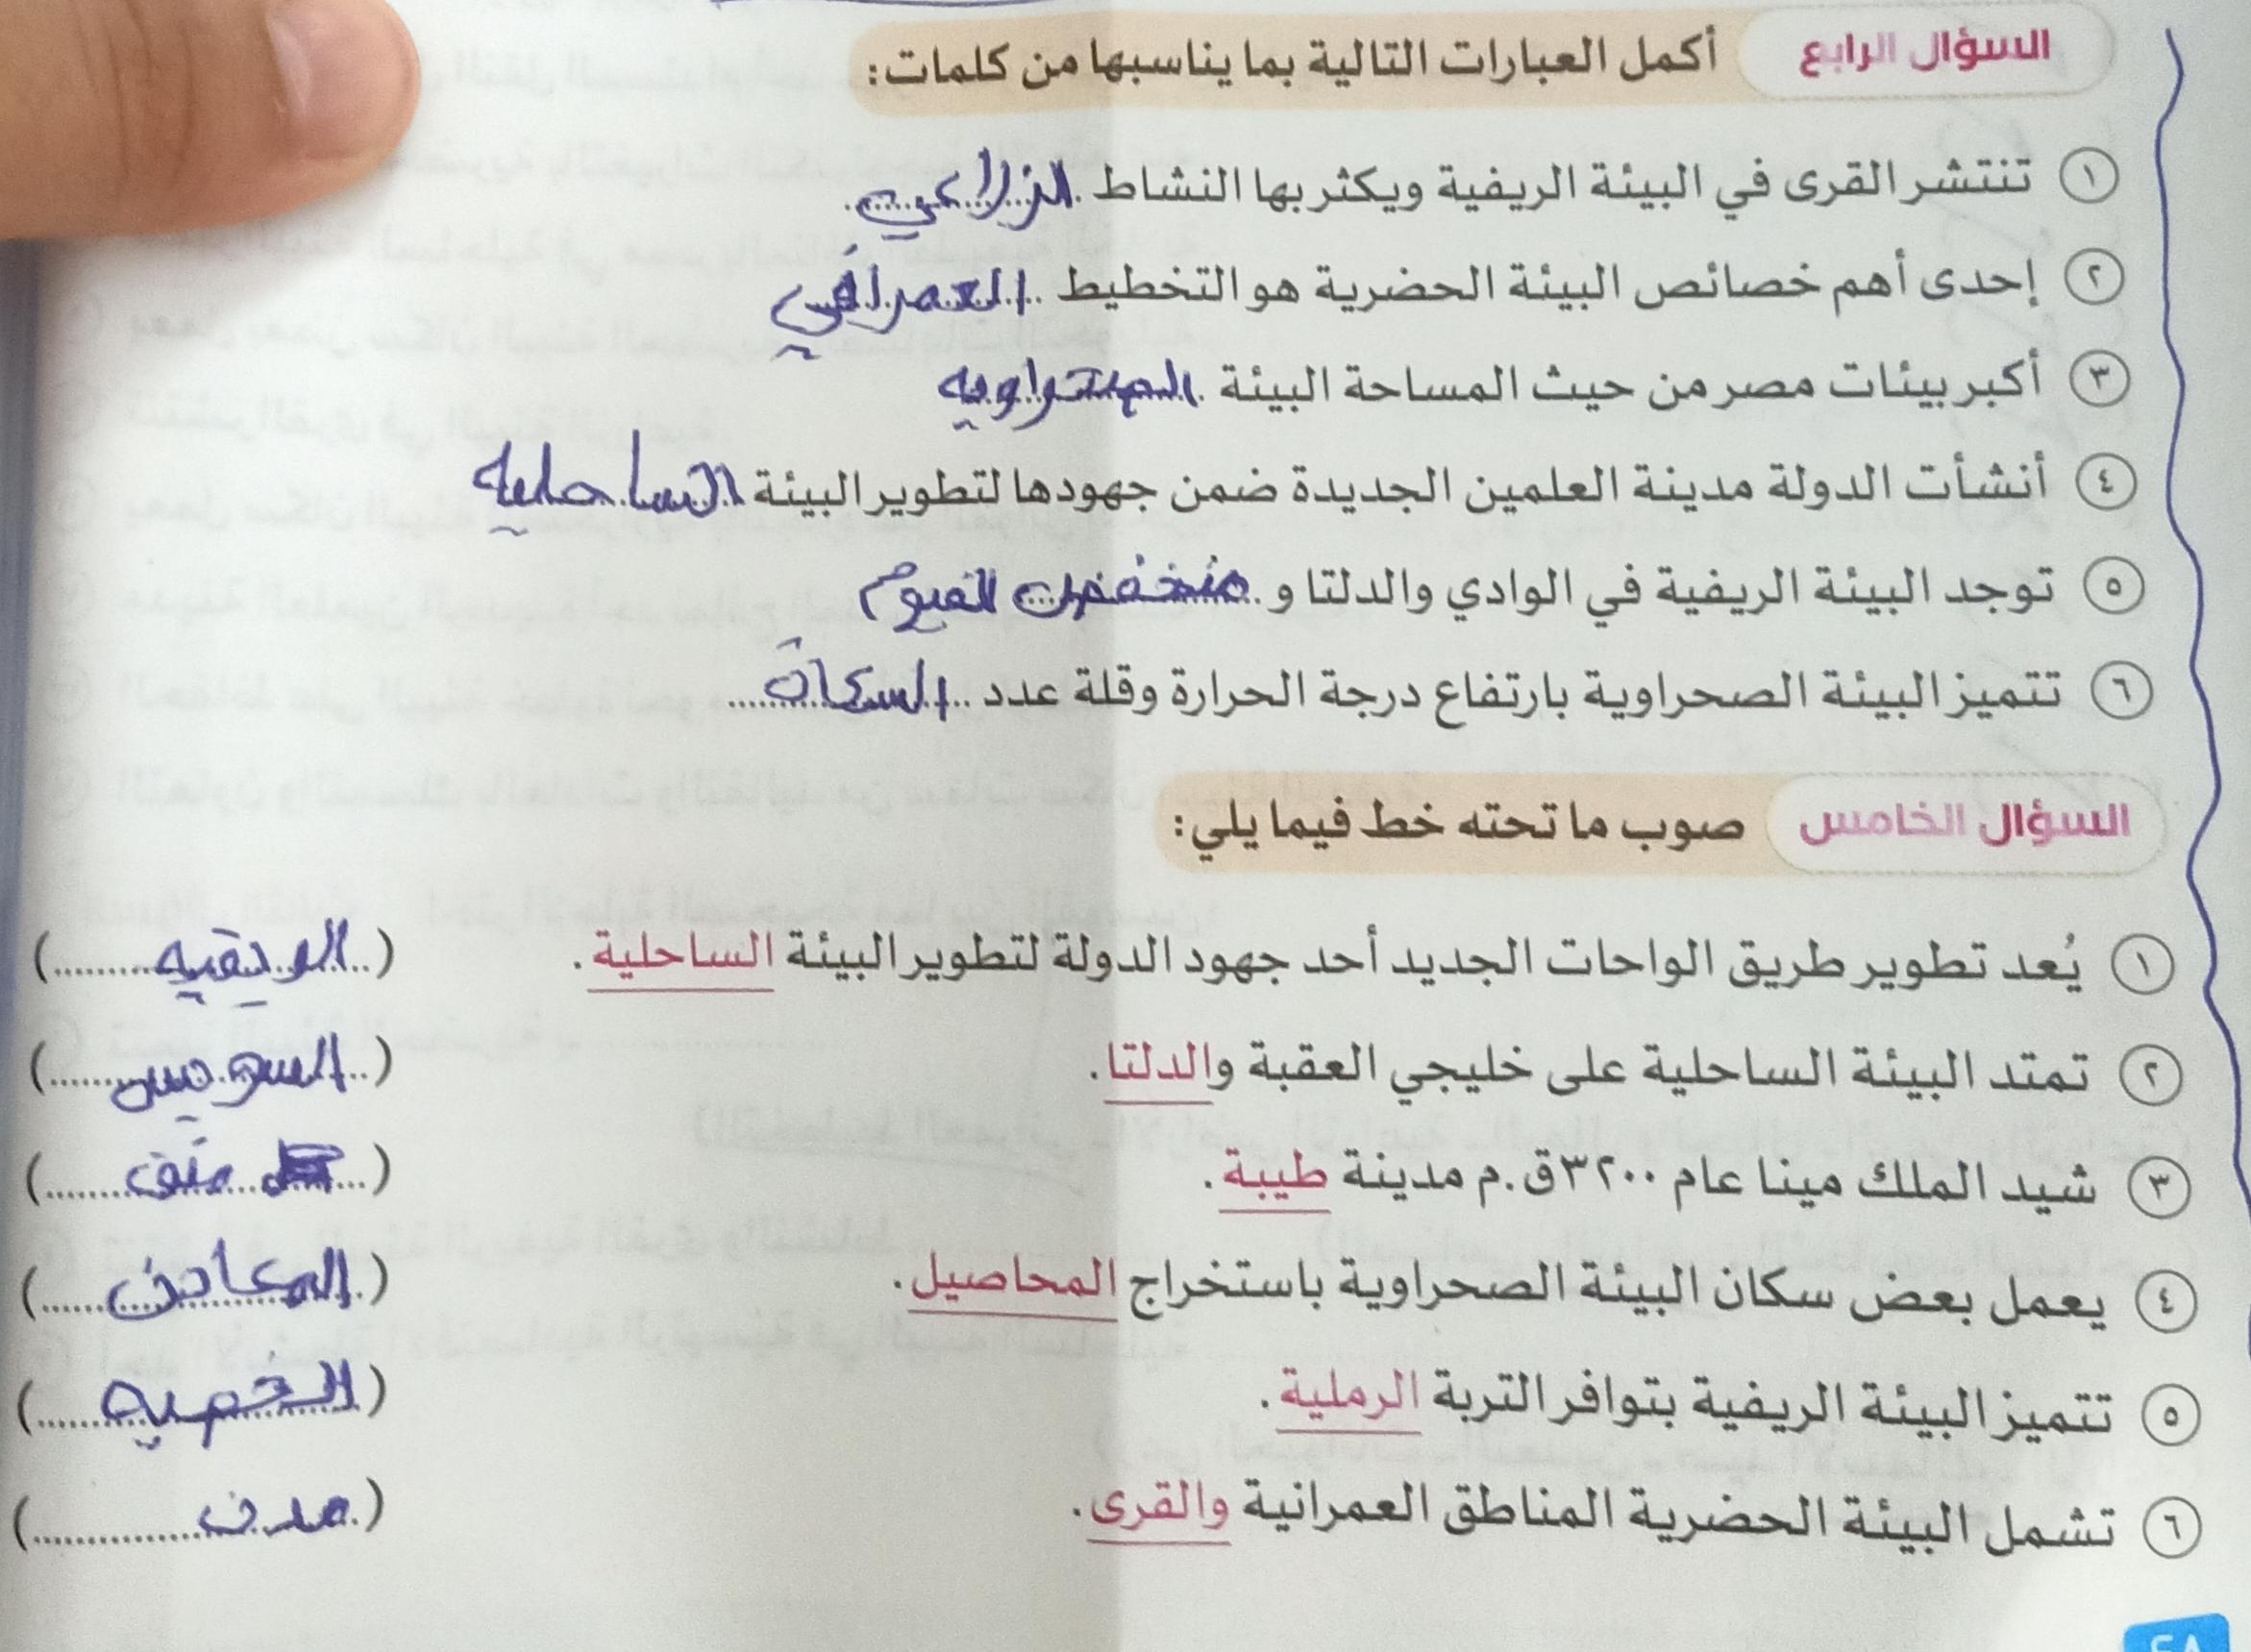 السؤال الرابع أكمل العبارات التالية بما يناسبها من كلمات:
١ تنتشر القرى في البيئة الريفية ويكثر بها النشاط الزراعي
٢ إحدى أهم خصائص البيئة الحضرية هو التخطيط العمراني
٣ أكبر بيئات مصر من حيث المساحة البيئة الصحراويه
٤ أنشأت الدولة مدينة العلمين الجديدة ضمن جهودها لتطوير البيئة الساحليه
٥ توجد البيئة الريفية في الوادي والدلتا و منخفض الفيوم
٦ تتميز البيئة الصحراوية بارتفاع درجة الحرارة وقلة عدد السكان
السؤال الخامس صوب ما تحته خط فيما يلي:
١ يُعد تطوير طريق الواحات الجديد أحد جهود الدولة لتطوير البيئة الساحلية. (الريفيه)
٢ تمتد البيئة الساحلية على خليجي العقبة والدلتا. (السويس)
٣ شيد الملك مينا عام ٣٢٠٠ق.م مدينة طيبة. (منف)
٤ يعمل بعض سكان البيئة الصحراوية باستخراج المحاصيل. (المعادن)
٥ تتميز البيئة الريفية بتوافر التربة الرملية. (الخصبه)
٦ تشمل البيئة الحضرية المناطق العمرانية والقرى. (مدن)